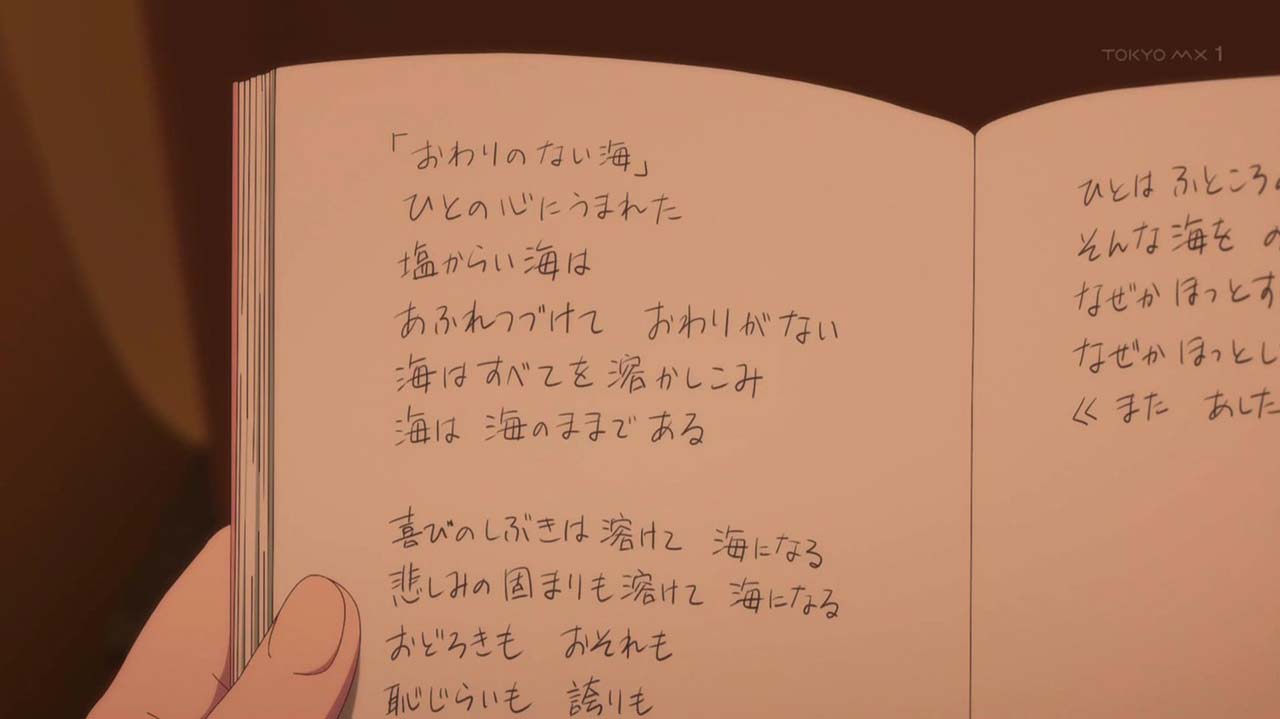 TOKYO MX 1
「おわりのない海」
ひとの心にうまれた
塩からい海は
あふれつづけて　おわりがない
海はすべてを溶かしこみ
海は　海のままである
喜びのしぶきは溶けて　海になる
悲しみの固まりも溶けて　海になる
おどろきも　おそれも
恥じらいも　誇りも
ひとは ふところ
そんな海を
なぜか ほっとす
なぜか ほっとし
≪ また　あした